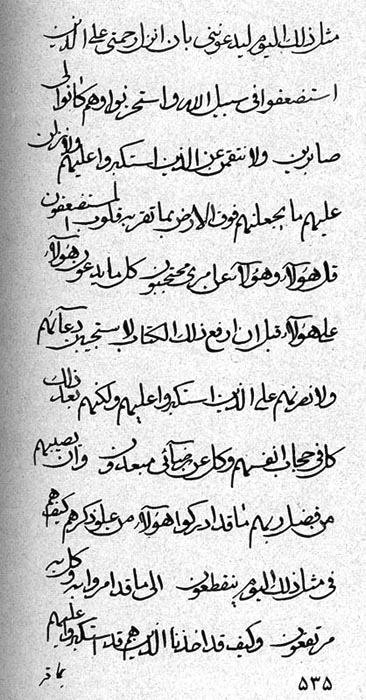 مثل ذلك اليوم ليدعونني بان انزل رحمتي على الذين
استضعفوا في سبيل الله واستحربوا وهم كانوا لي
صابرين ولانتقمن عن الذين استكبروا عليهم ولانزلن
عليهم ما يجعلنهم فوق الارض بما تقر به قلوب المستضعفون
قل هؤلاء وهؤلاء عن امري محتجبون كل ما يدعون هؤلاء
على هؤلاء قبل ان ارفع ذلك الكتاب لاستجيبن دعائهم
ولانصرنهم على الذين استكبروا عليهم ولكنهم بعد ذلك
كل في حجاب انفسهم وكل عن رضائي مبعدون وان نصيبهم
من فضل ربهم ما قد ادركوا هؤلاء من علو ذكرهم كيف هم
في مثل ذلك اليوم ينقطعون الى ما قد امروا به وكل به
مرتفعون وكيف قد اخذنا الذين هم قد استكبروا عليهم
بما قد
٥٣٥